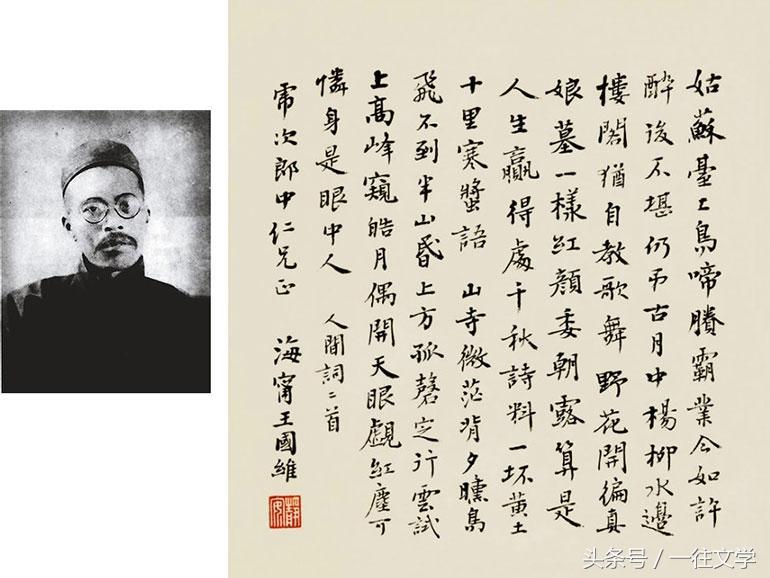 姑蘇臺上烏啼賸霸業今如許
醉後不堪仍弔古月中楊柳水邊
樓閣猶自教歌舞 野花開徧真
娘墓一樣紅顏委朝露算是
人生贏得處千秋詩料一坏黃土
十里寒螿語 山寺微茫背夕曛鳥
飛不到半山昏上方孤磬定行雲試
上高峰窺皓月偶開天眼覷紅塵可
憐身是眼中人 人間詞二首
次郎中仁兄正 海甯王國維
靜安
头条号 / 一往文学